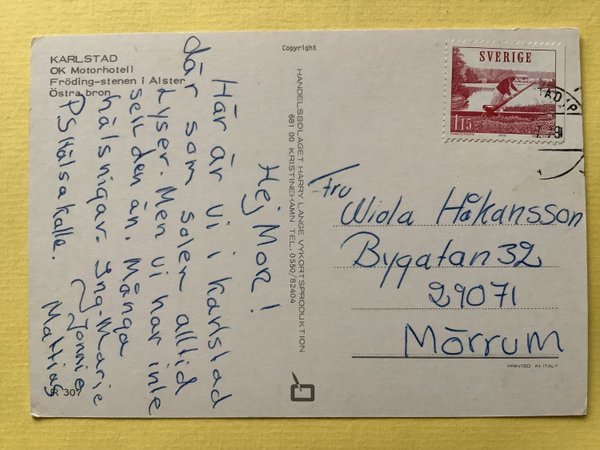 KARLSTAD
OK Motorhotell
Fröding-stenen i Alster
Östra bron
Copyright
HANDELSBOLAGET HARRY LANGE VYKORTSPRODUKTION
681 00 KRISTINEHAMN TEL. 0550/82404
Hej Mor!
Här är vi i Karlstad
där som solen alltid
lyser. Men vi har inte
sett den än. Många
hälsnigar. Ing-Marie
Jonnie
Mattias
PS Hälsa kalle.
R 307
SVERIGE
115
Fru
Wiola Håkansson
Bygatan 32
29071
Mörrum
PRINTED IN ITALY